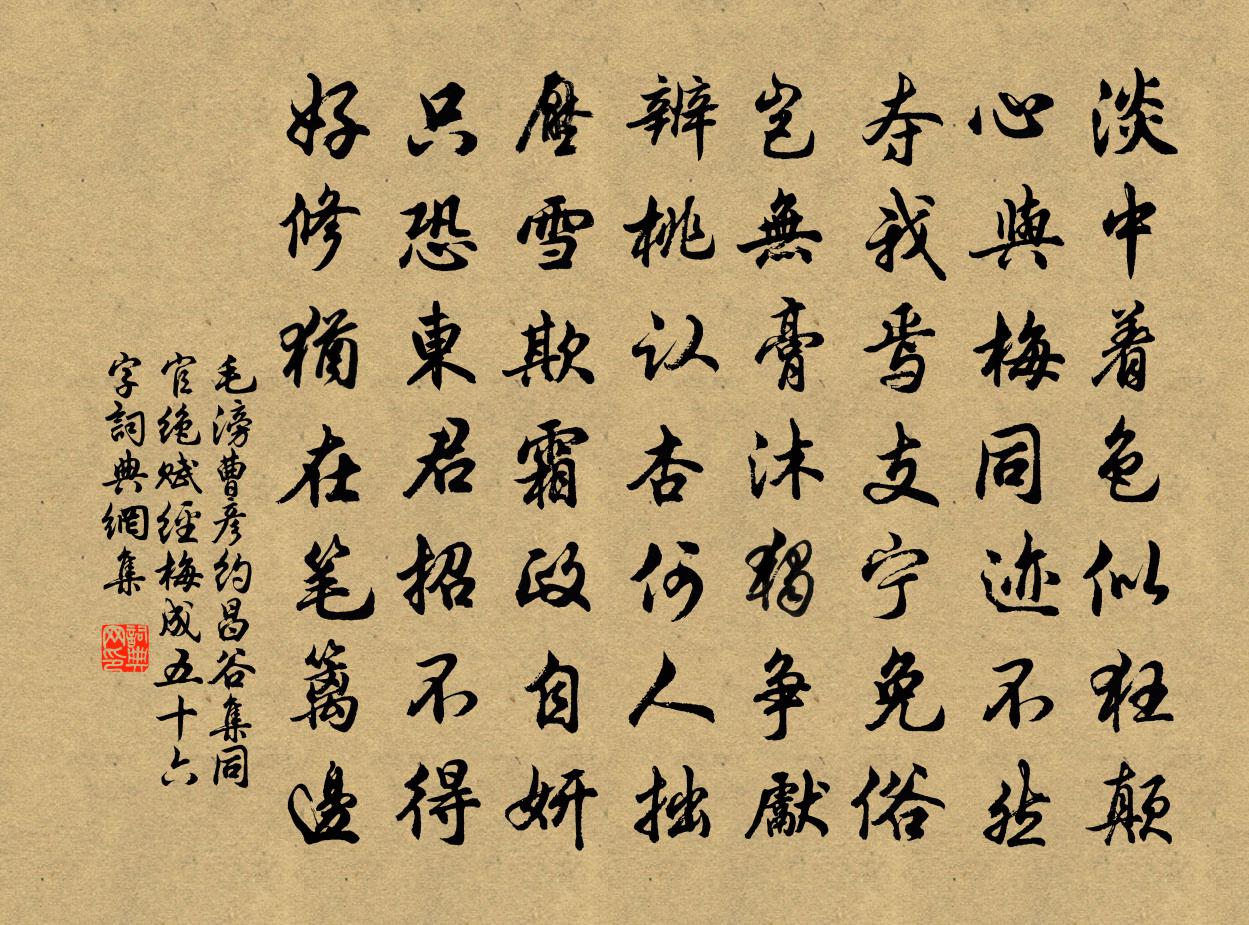 淡中着色似狂颠
心與梅同迹不然
夺我焉支宁免俗
岂無膏沐独争獻
辨桃认杏何人拙
壓雪欺霜政自妍
只恐東君招不得
好修猶在笔篱邊
毛滂曹彦约昌谷集同
官绝赋經梅成五十六
字詞典網集
詞典网印